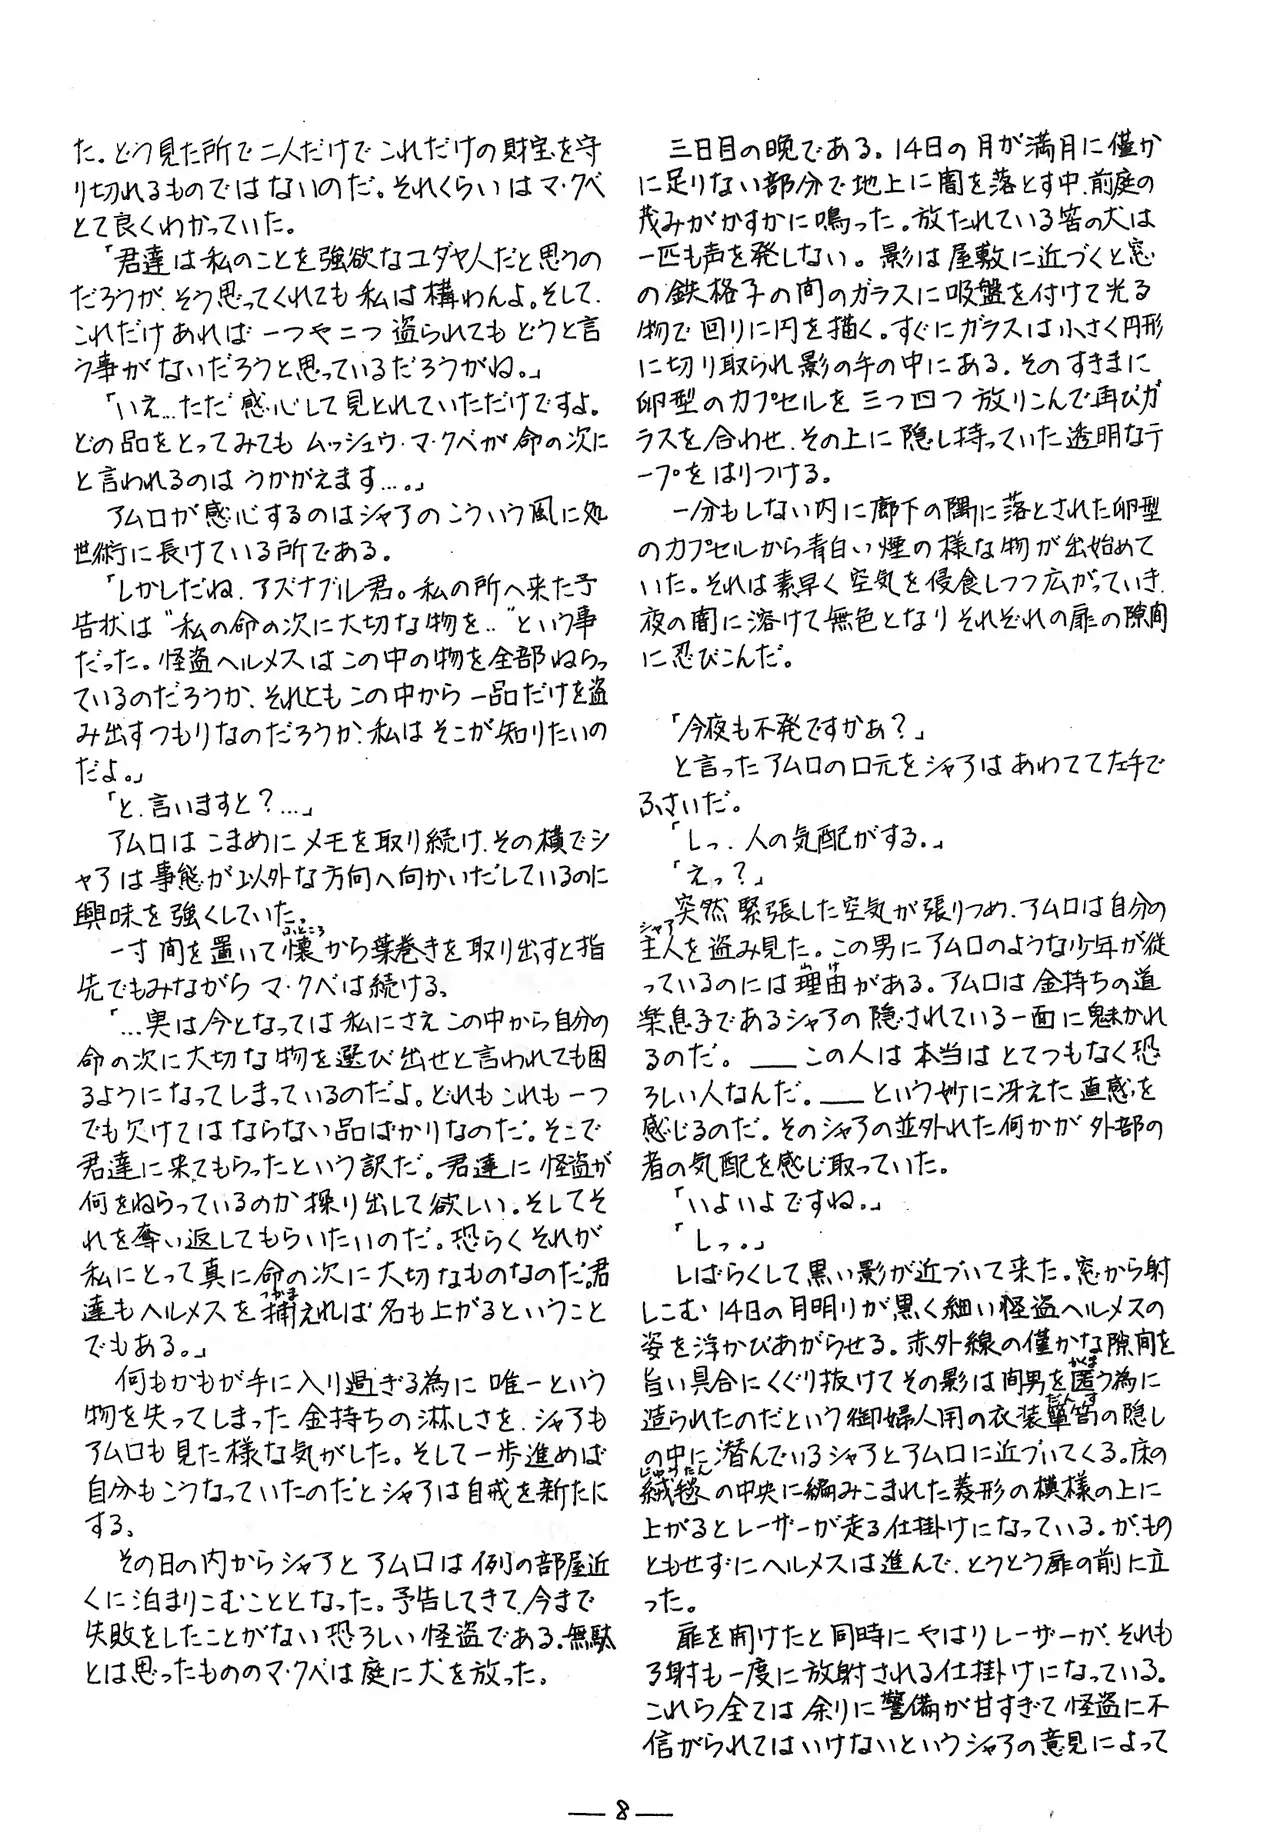 た。どう見た所で二人だけでこれだけの財宝を守
り切れるものではないのだ。それくらいはマ・クベ
とて良くわかっていた。
「君達は私のことを強欲なユダヤ人だと思うの
だろうが、そう思ってくれても私は構わんよ。そして、
これだけあれば一つや二つ盗られてもどうと言
う事がないだろうと思っているだろうがね。」
「いえ…ただ感心して見とれていただけですよ。
どの品をとってみてもムッシュウ・マ・クベが命の次に
と言われるのはうかがえます…。」
アムロが感心するのはシャアのこういう風に処
世術に長けている所である。
「しかしだね、アズナブル君。私の所へ来た予
告状は“私の命の次に大切な物を‥”という事
だった。怪盗ヘルメスはこの中の物を全部ねらっ
ているのだろうか、それともこの中から一品だけを盗
み出すつもりなのだろうか、私はそこが知りたいの
だよ。」
「と、言いますと？…」
アムロはこまめにメモを取り続け、その横でシ
ャアは事態が以外な方向へ向かいだしているのに
興味を強くしていた。
一寸間を置いて懐から葉巻きを取り出すと指
ふところ
先でもみながらマ・クベは続ける、
「…男は今となっては私にさえこの中から自分の
命の次に大切な物を選び出せと言われても困
るようになってしまっているのだよ。どれもこれも一つ
でも欠けてはならない品ばかりなのだ。そこで
君達に来てもらったという訳だ。君達に怪盗が
何をねらっているのか探り出して欲しい。そしてそ
れを奪い返してもらいたいのだ。恐らくそれが
私にとって真に命の次に大切なものなのだ。君
達もヘルメスを捕えれば名も上がるということ
つかま
でもある。」
何もかもが手に入り過ぎる為に唯一という
物を失ってしまった金持ちの淋しさを、シャアも
アムロも見た様な気がした。そして一歩進めば
自分もこうなっていたのだとシャアは自戒を新たに
する。
その日の内からシャアとアムロは例の部屋近
くに泊まりこむこととなった。予告してきて、今まで
失敗をしたことがない恐ろしい怪盗である、無駄
とは思ったもののマ・クベは庭に犬を放った。
三日目の晩である。14日の月が満月に僅か
に足りない部分で地上に闇を落とす中、前庭の
茂みがかすかに鳴った。放たれている筈の犬は
一匹も声を発しない。影は屋敷に近づくと窓
の鉄格子の間のガラスに吸盤を付けて光る
物で回りに円を描く。すぐにガラスは小さく円形
に切り取られ影の手の中にある。そのすきまに
卵型のカプセルを三つ四つ放りこんで再びガ
ラスを合わせ、その上に隠し持っていた透明なテ
ープをはりつける。
一分もしない内に廊下の隅に落とされた卵型
のカプセルから青白い煙の様な物が出始めて
いた。それは素早く空気を侵食しつつ広がっていき、
夜の闇に溶けて無色となりそれぞれの扉の隙間
に忍びこんだ。
「今夜も不発ですかあ？」
と言ったアムロの口元をシャアはあわてて左手で
ふさいだ。
「しっ、人の気配がする。」
「えっ？」
突然緊張した空気が張りつめ、アムロは自分の
主人を盗み見た。この男にアムロのような少年が従
シャア
っているのには理由がある。アムロは金持ちの道
わけ
楽息子であるシャアの隠されている一面に魅かれ
るのだ。――この人は本当はとてつもなく恐
ろしい人なんだ。――という妙に冴えた直感を
感じるのだ。そのシャアの並外れた何かが外部の
者の気配を感じ取っていた。
「いよいよですね。」
「しっ。」
しばらくして黒い影が近づいて来た。窓から射
しこむ14日の月明りが黒く細い怪盗ヘルメスの
姿を浮かびあがらせる。赤外線の僅かな隙間を
旨い具合にくぐり抜けてその影は間男を匿う為に
かくま
造られたのだという御婦人用の衣装箪笥の隠し
だんす
の中に潜んでいるシャアとアムロに近づいてくる。床の
絨毯の中央に編みこまれた菱形の模様の上に
じゅうたん
上がるとレーザーが走る仕掛けになっている。が、もの
ともせずにヘルメスは進んで、とうとう扉の前に立
った。
扉を開けたと同時にやはりレーザーが、それも
3射も一度に放射される仕掛けになっている。
これら全ては余りに警備が甘すぎて怪盗に不
信がられてはいけないというシャアの意見によって
― 8 ―